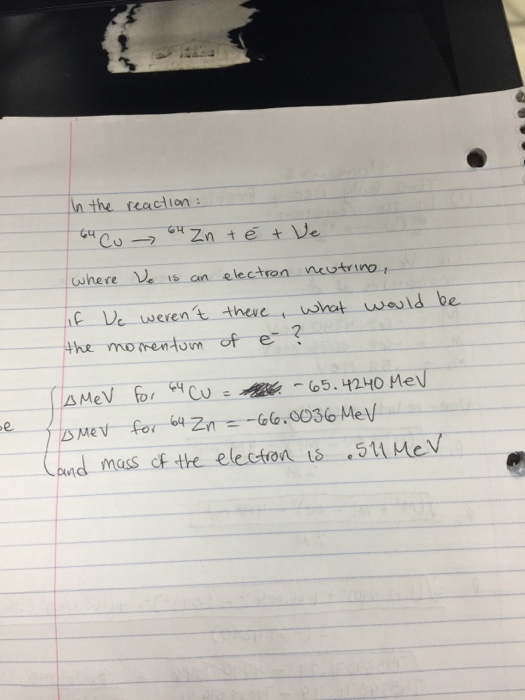 In the reaction:
⁶⁴Cu → ⁶⁴Zn + e⁻ + νe
where νe is an electron neutrino,
if νe weren't there, what would be
the momentum of e⁻?
ΔMeV for ⁶⁴Cu = -65.4240 MeV
ΔMeV for ⁶⁴Zn = -66.0036 MeV
and mass of the electron is .511 MeV